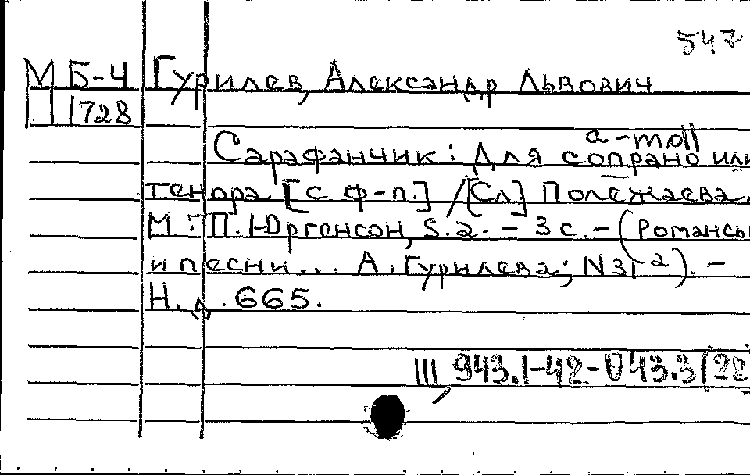 547
М Б-4 Гурилев, Александр Львович
П 1728
a-moll
Сарафанчик: Для сопрано или
тенора [с ф-п.] /[Сл] Полежаева.
М.: П. Юргенсон, s.a. - 3 с. - (Романсы
и песни... А. Гурилева; N 31 a). -
Н.д. 665.
III, 943.1-42-043.3(22